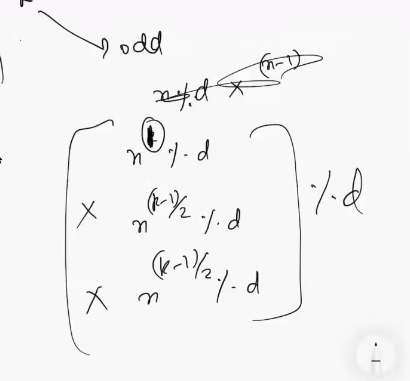 odd
n % d × (n-1)
[ n^1 % d
× n^(k-1)/2 % d
× n^(k-1)/2 % d ] % d